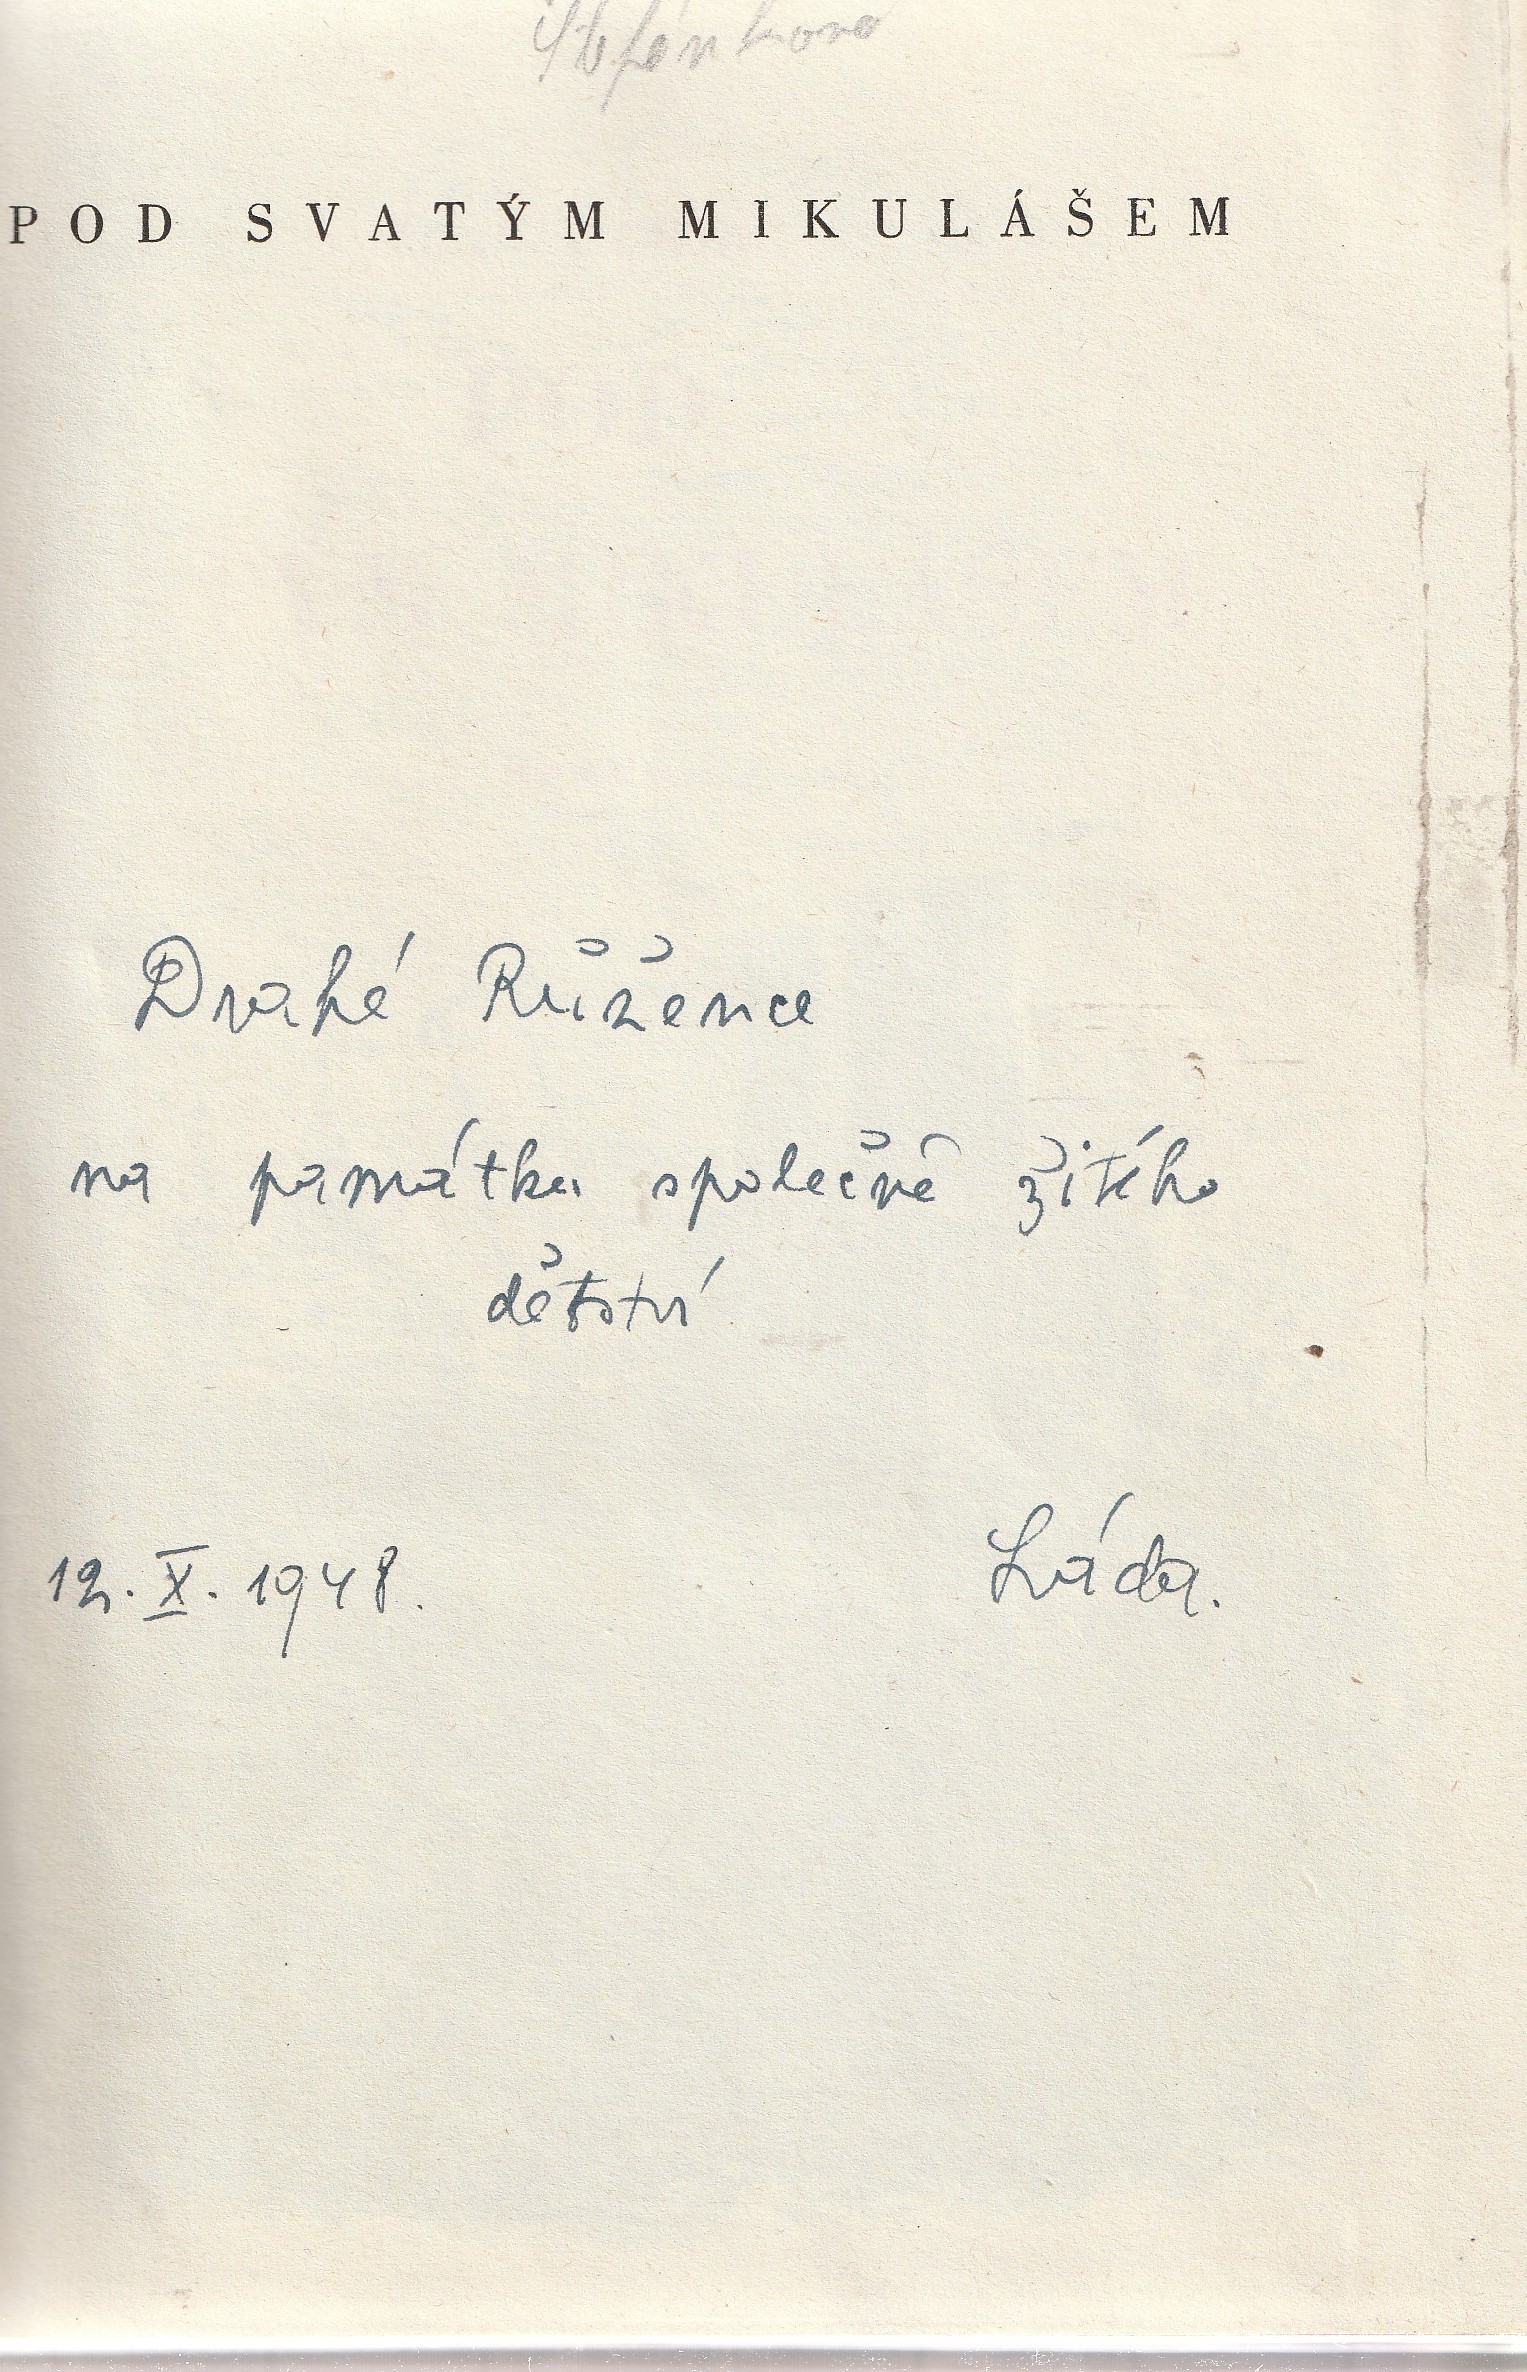 Štěpánková
POD SVATÝM MIKULÁŠEM
Drahé Růžence
na památku společně žitého
dětství
12. X. 1948. Láda.